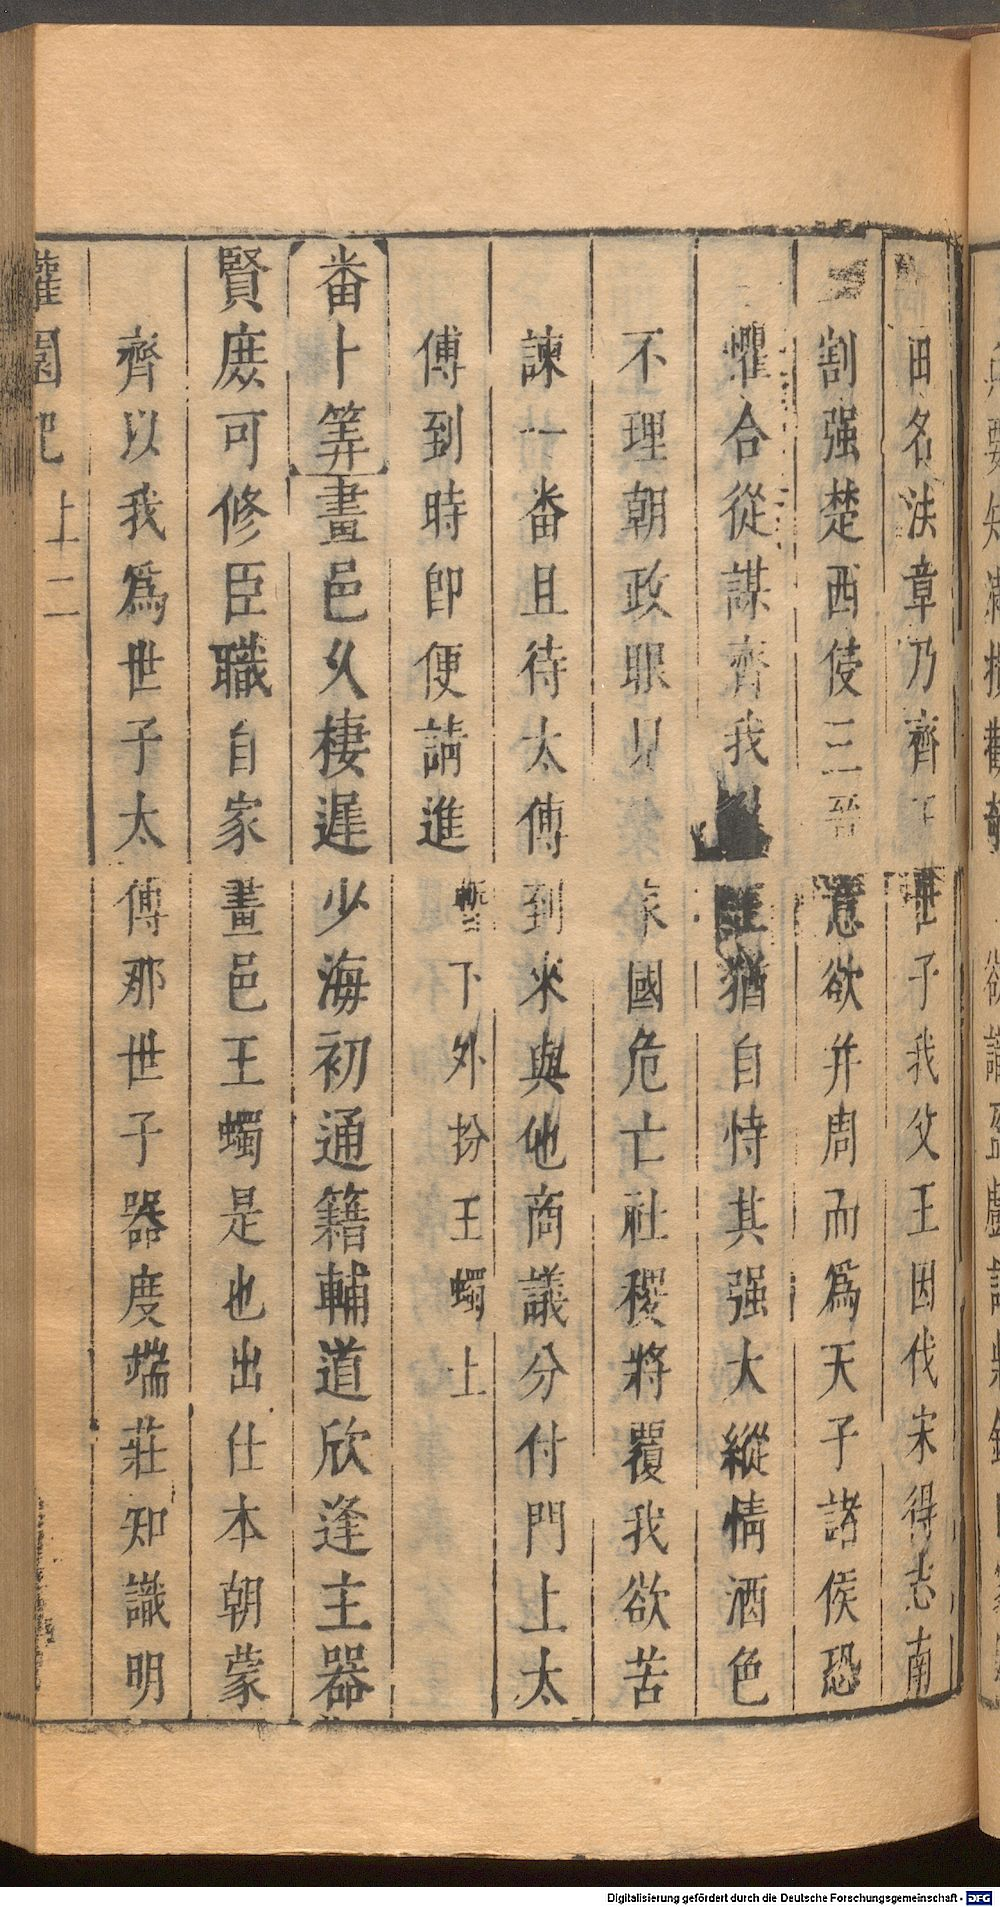 田名法章乃齊王世子我父王因伐宋得志南
割强楚西使三晉意欲并周而爲天子諸侯恐
懼合從謀齊我王猶自恃其强大縱情酒色
不理朝政眼見家國危亡社稷將覆我欲苦
諫一番且待太傅到來與他商議分付門上太
傅到時即便請進暫下外扮王蠋上
番卜筭畫邑久棲遲少海初通籍輔道欣逢主器
賢庶可修臣職自家畫邑王蠋是也出仕本朝蒙
齊以我爲世子太傅那世子器度端莊知識明
灌園記 上 二
Digitalisierung gefördert durch die Deutsche Forschungsgemeinschaft - DFG